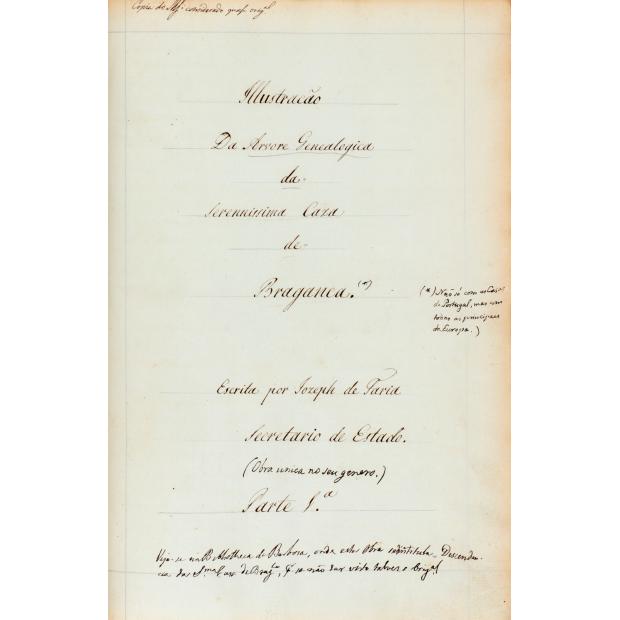 Copia do Ms. considerado quasi orig.l
Illustração
Da Arvore Genealogica
da
Serenissima Caza
de
Braganca. (*)
(*) Não só com as Casas
de Portugal, mas com
todas as principaes
da Europa.)
Escrita por Jozeph de Faria
Secretario de Estado.
(Obra unica no seu genero.)
Parte 1.a
Veja-se na Bibliotheca de Barbosa, onde esta Obra se intitula - Descenden-
cia da S.ma Casa de Brag.ça, se não visto talvez o Orig.l